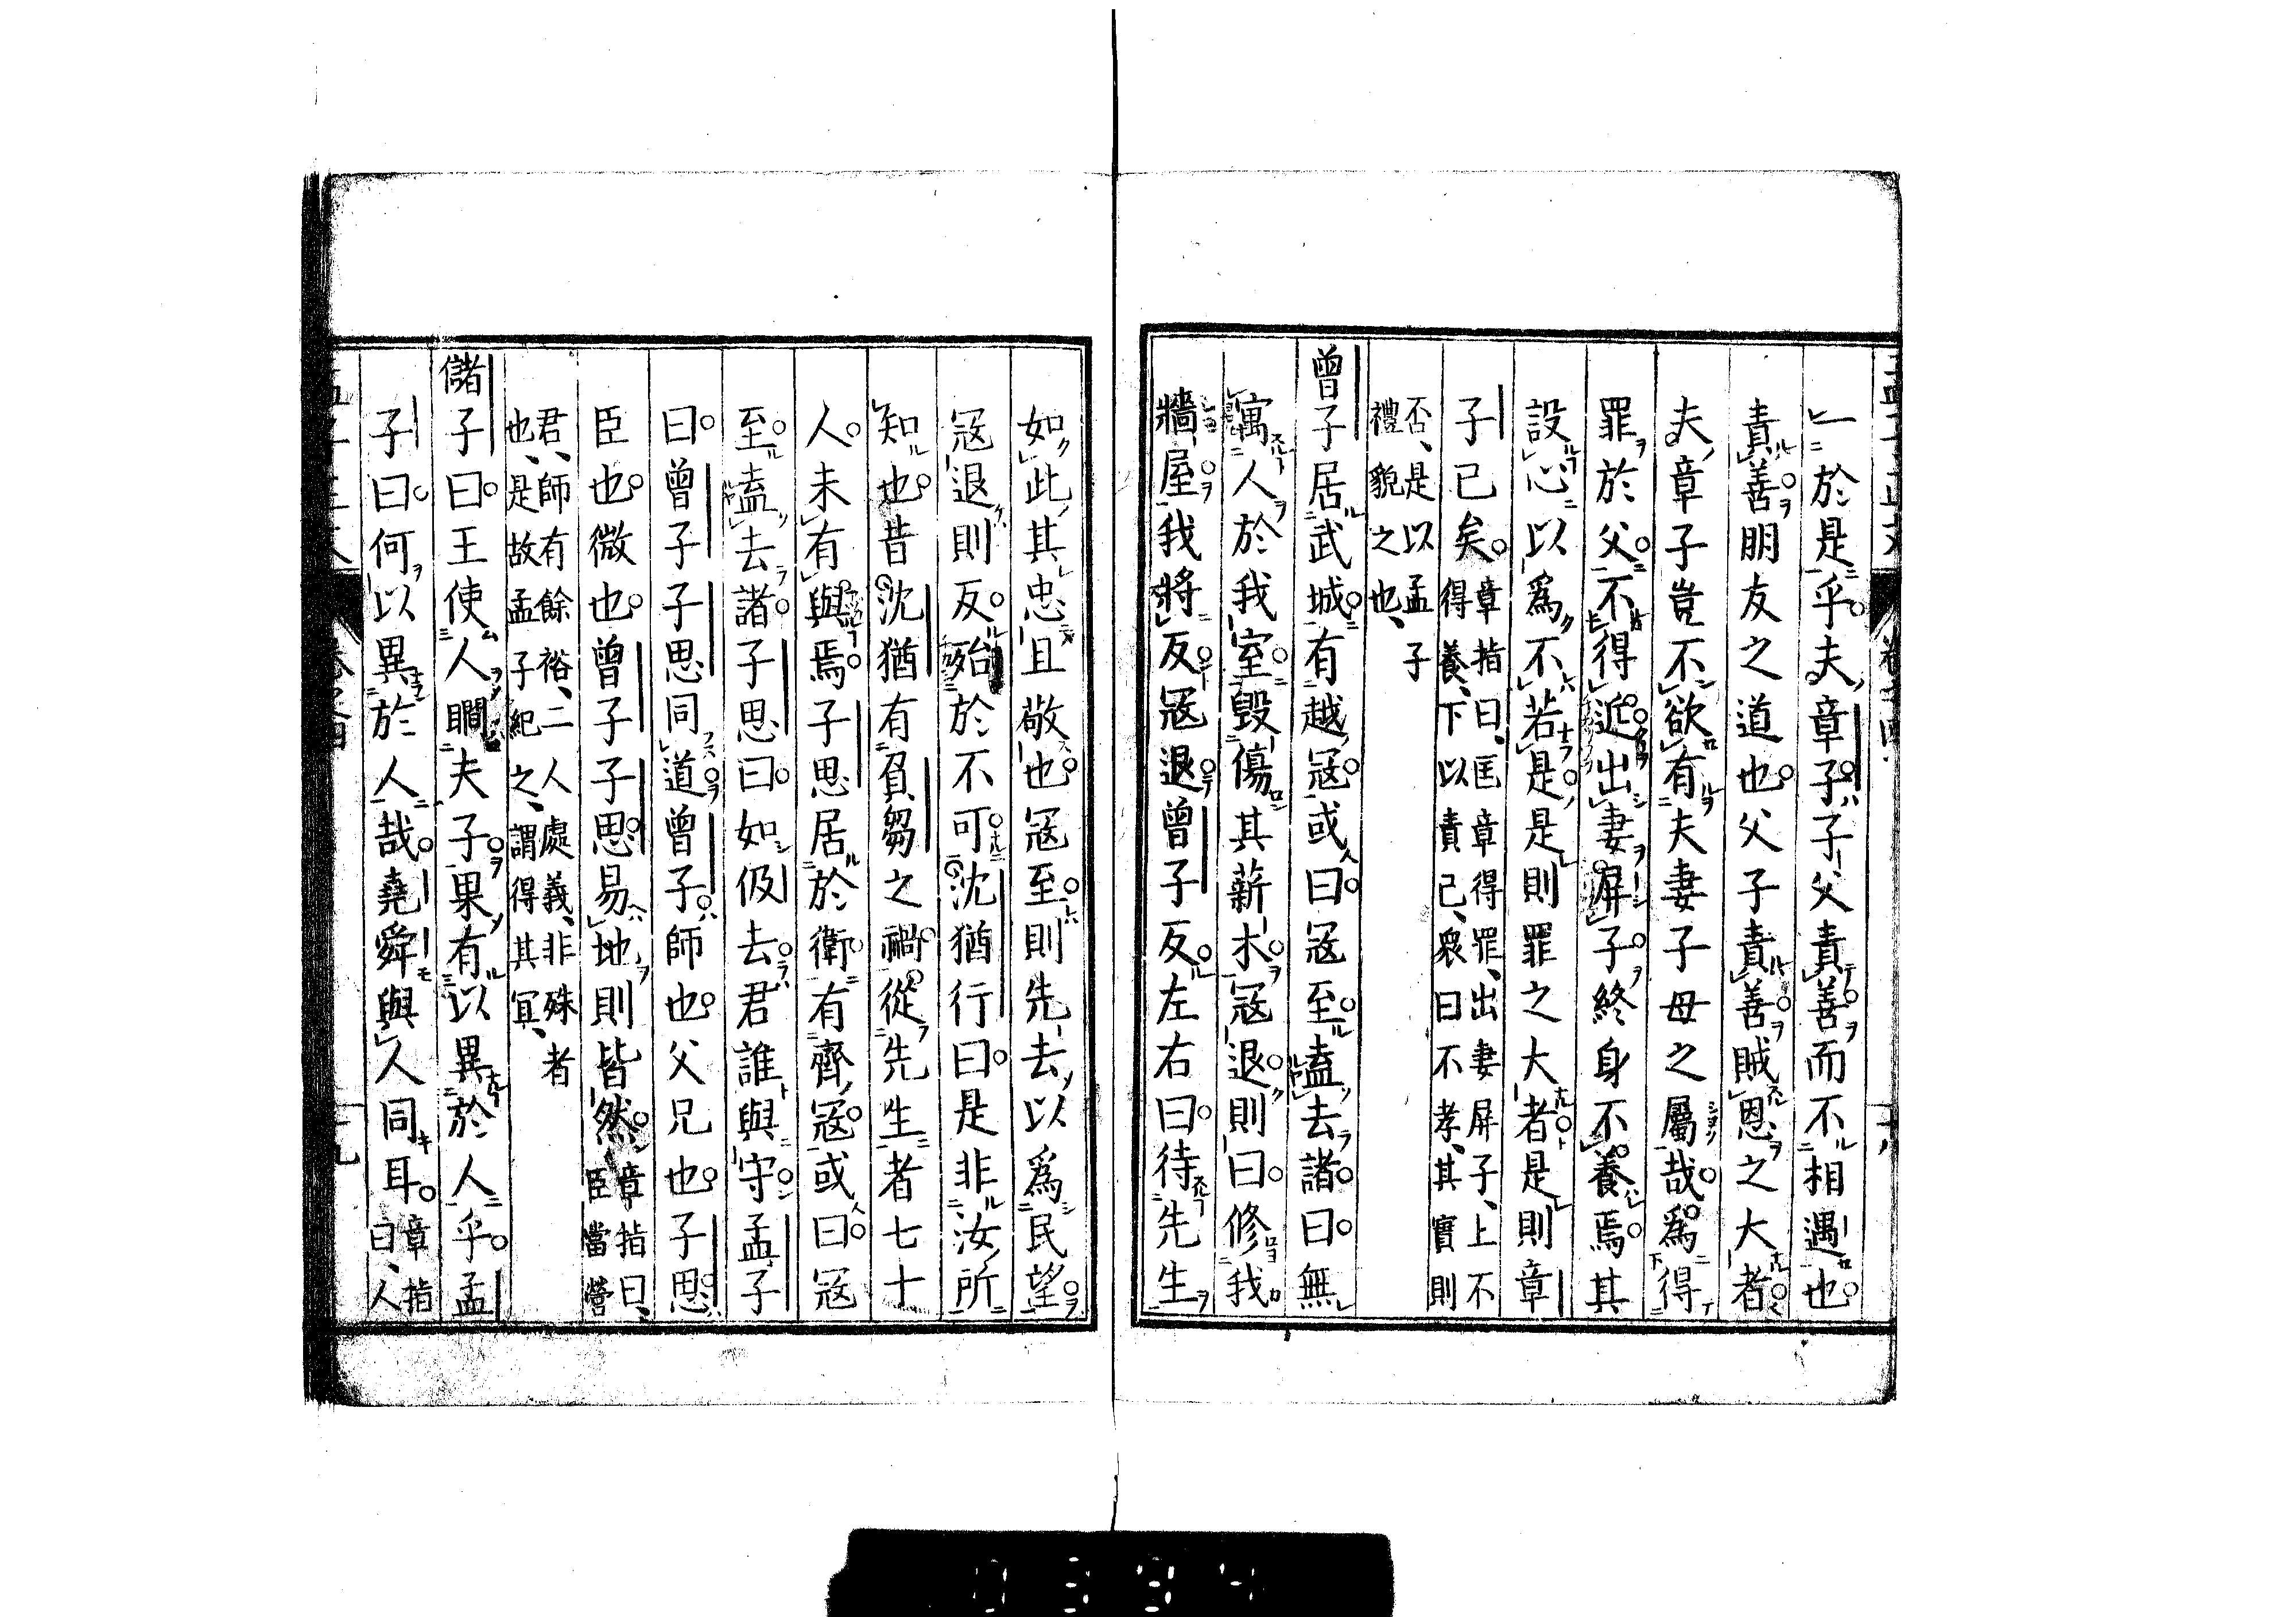 一於是乎夫章子子父責善而不相遇也
責善朋友之道也父子責善賊恩之大者
夫章子豈不欲有夫妻子母之屬哉爲得
罪於父不得近出妻屏子終身不養焉其
設心以爲不若是是則罪之大者是則章
子已矣章指曰、匡章得罪、出妻屏子、上不
得養、下以責己、衆曰不孝、其實則
否、是以孟子
禮貌之也、
曾子居武城有越寇或曰寇至盍去諸曰無
寓人於我室毀傷其薪木寇退則曰修我
牆屋我將反寇退曾子反左右曰待先生
如此其忠且敬也寇至則先去以爲民望
寇退則反殆於不可沈猶行曰是非汝所
知也昔沈猶有負芻之禍從先生者七十
人未有與焉子思居於衛有齊寇或曰寇
至盍去諸子思曰如伋去君誰與守孟子
曰曾子子思同道曾子師也父兄也子思
臣也微也曾子子思易地則皆然章指曰、
臣當營
君、師有餘裕、二人處義、非殊者
也、是故孟子紀之、謂得其宜、
儲子曰王使人瞯夫子果有以異於人乎孟
子曰何以異於人哉堯舜與人同耳章指
曰、人